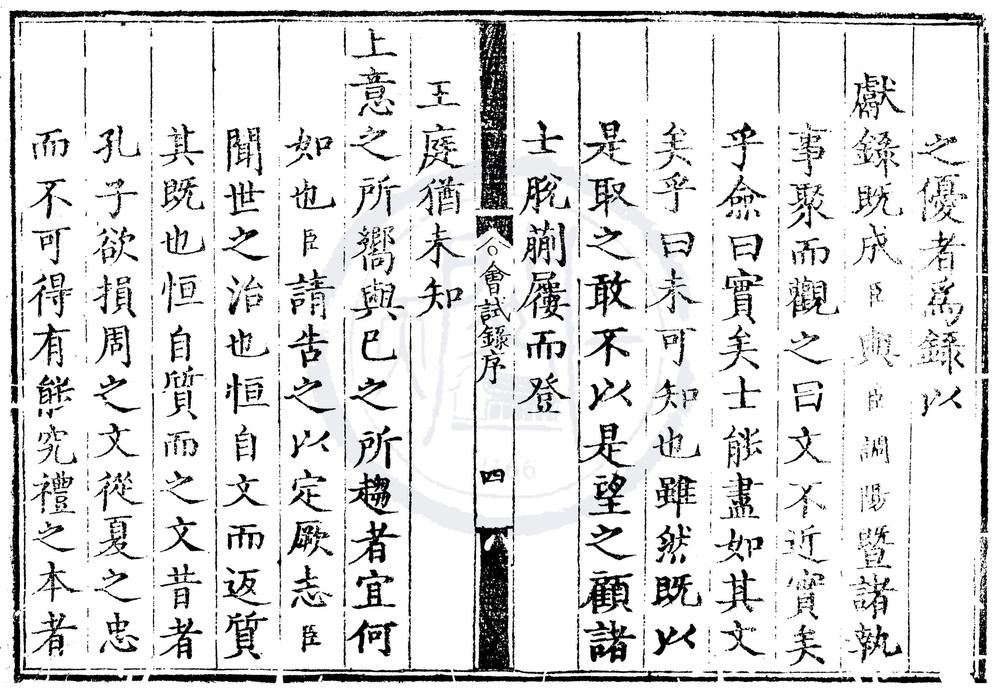 之優者爲錄以
獻錄既成臣與臣調陽暨諸執
事聚而觀之曰文不近實矣
乎僉曰實矣士能盡如其文
矣乎曰未可知也雖然既以
是取之敢不以是望之顧諸
士脫蒯屨而登
會試錄序
四
王庭猶未知
上意之所嚮與已之所趨者宜何
如也臣請告之以定厥志臣
聞世之治也恒自文而返質
其既也恒自質而之文昔者
孔子欲損周之文從夏之忠
而不可得有能究禮之本者